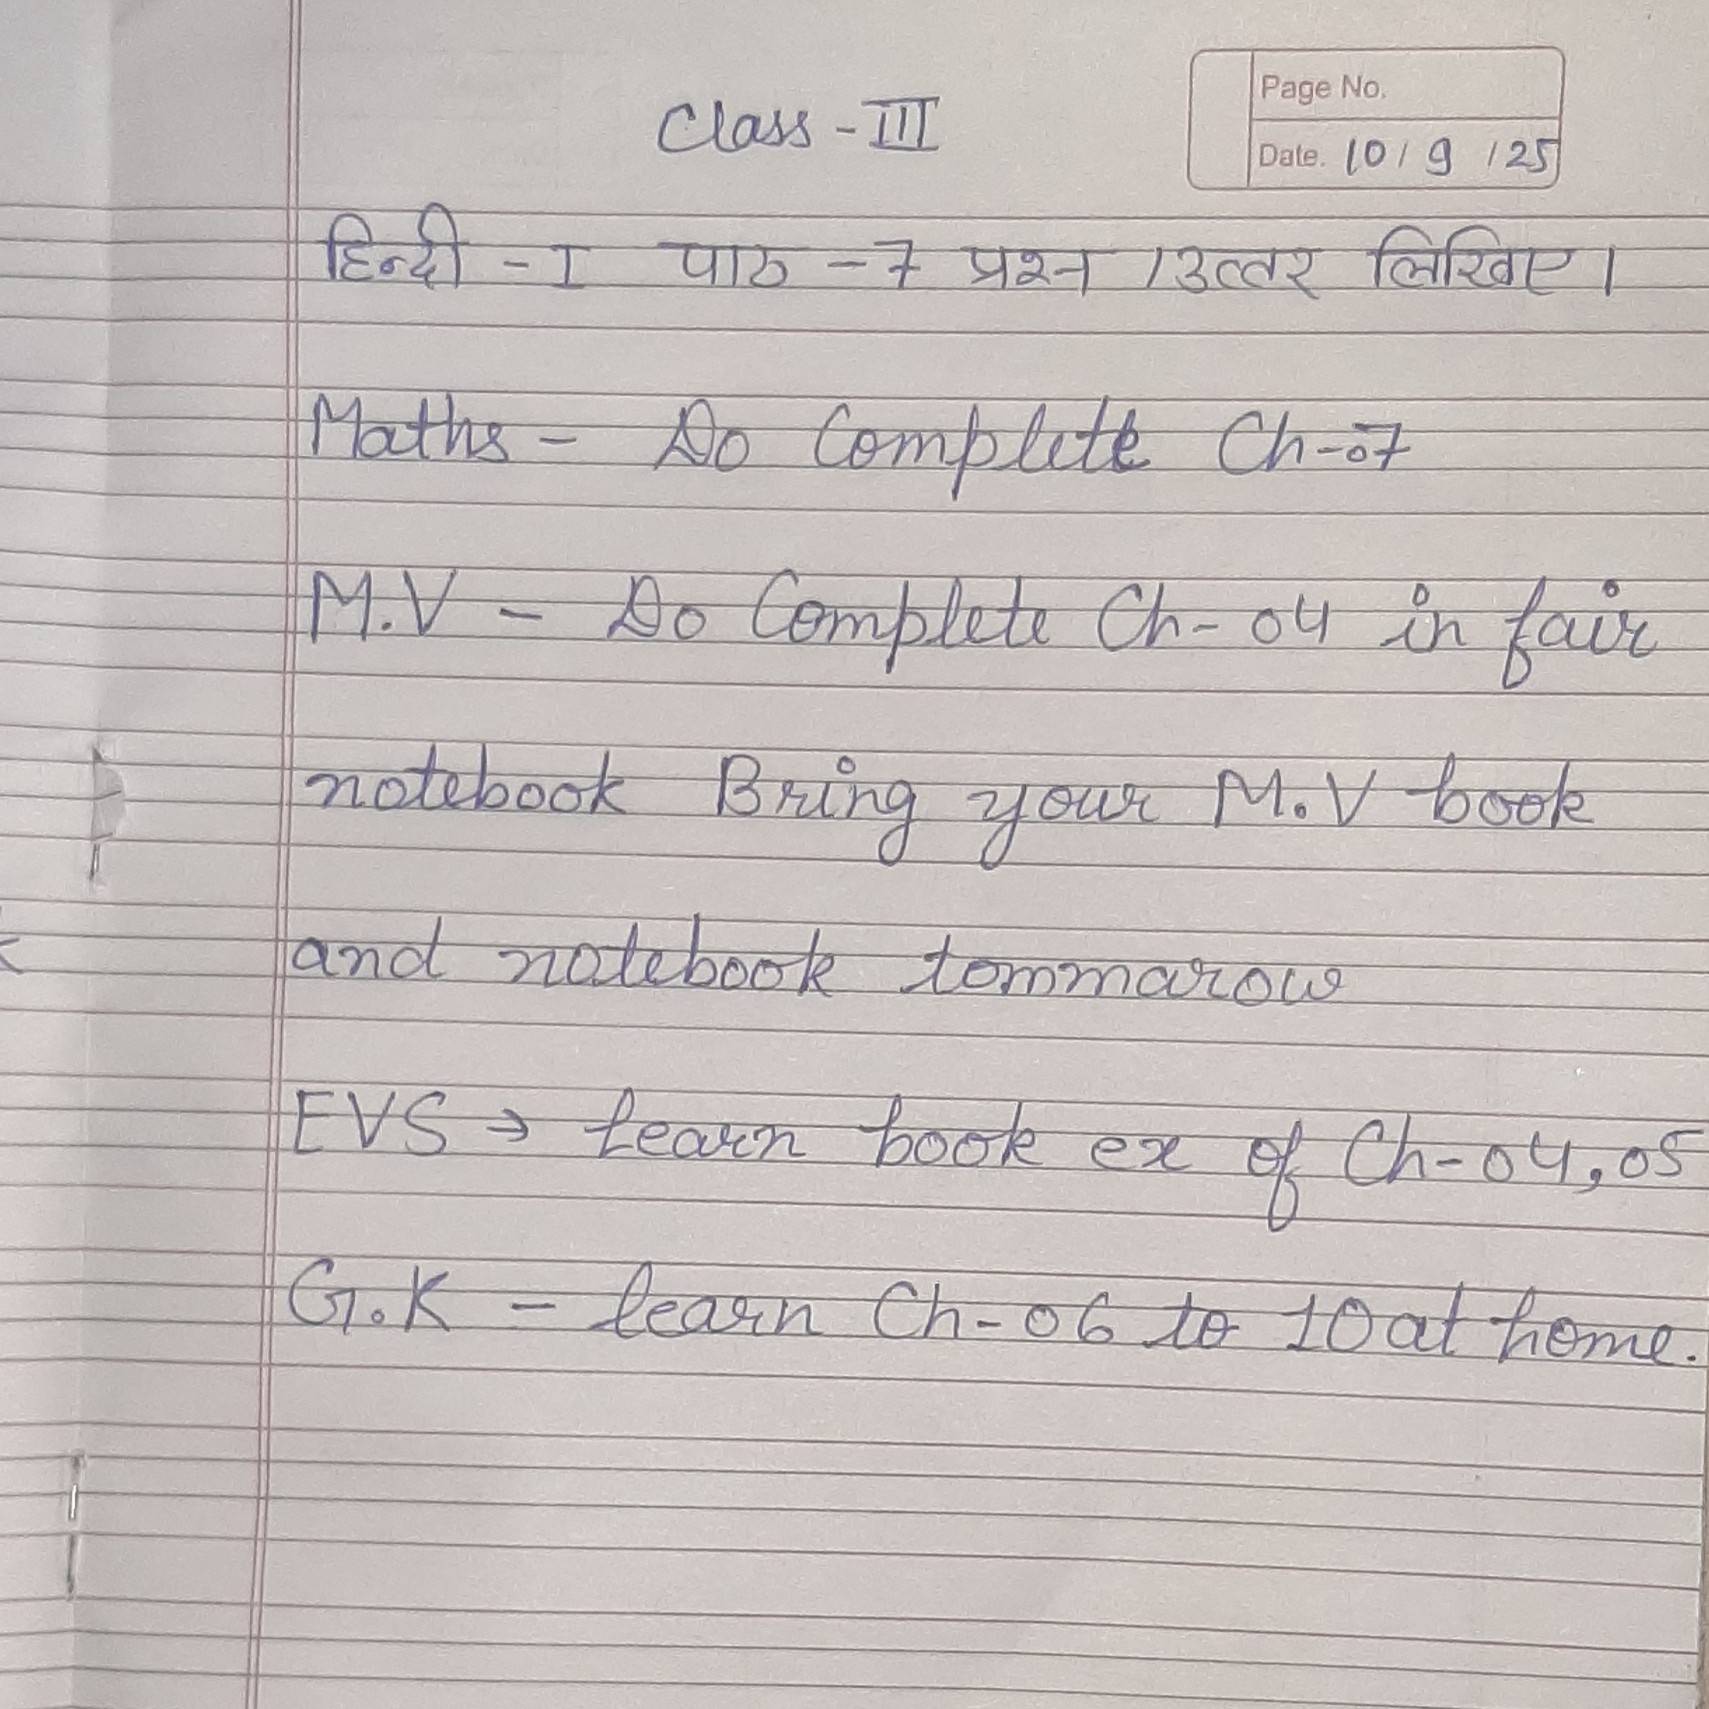 Class - III
Page No.
Date. 10 / 9 / 25
हिन्दी - I पाठ - 7 प्रश्न / उत्तर लिखिए।
Maths - Do Complete Ch-07
M.V - Do Complete Ch- 04 in fair
notebook Bring your M.V book
and notebook tommarow
EVS → learn book ex of Ch-04,05
G.K - learn Ch-06 to 10 at home.